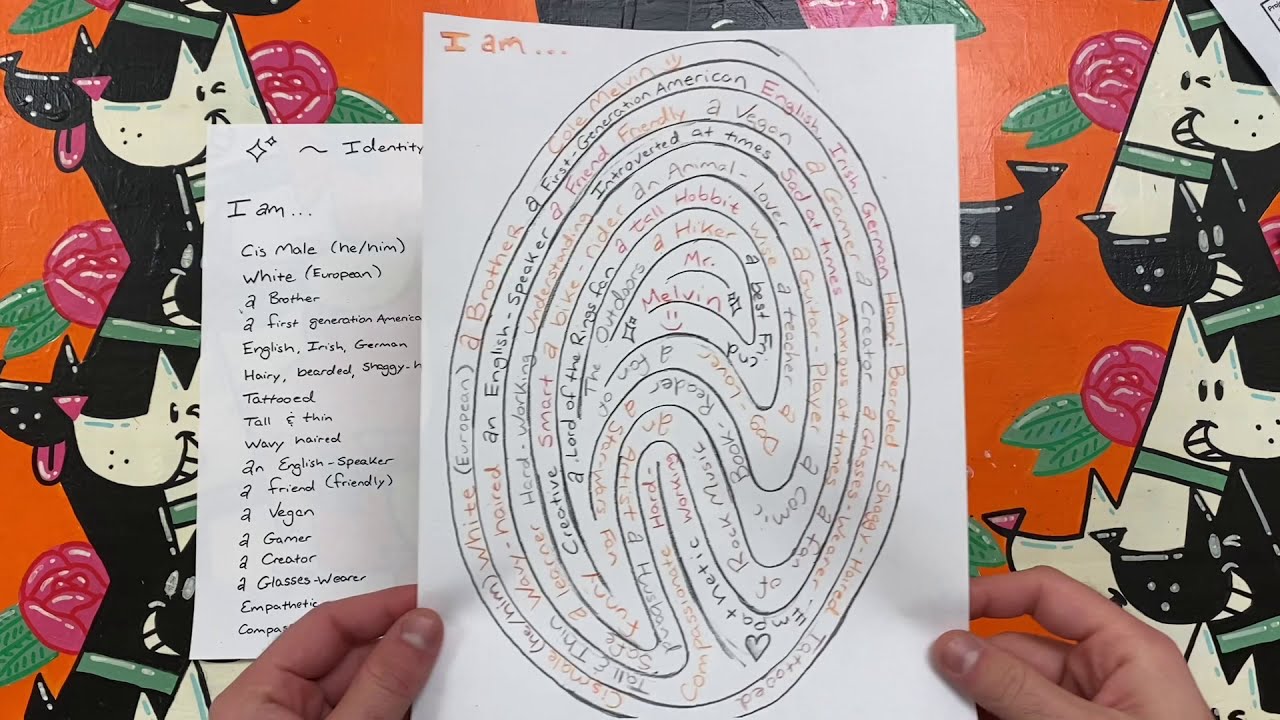 I am...
Cole Melvin
Cis male (he/him) White (European) a Brother a First-Generation American English, Irish, German Hairy! Bearded & Shaggy-Haired Tattooed
Tall & Thin Wavy haired an English-Speaker a Friend Friendly a Vegan a Gamer a Creator a Glasses-Wearer Empathetic
a learner Hard-Working understanding Introverted at times Sad at times Anxious at times a fan of Rock Music
Creative Smart a bike-rider an Animal-lover a Guitar-Player a Comic Book-Reader a fan of Starwars
a Lord of the Rings fan a tall Hobbit Wise a teacher a Dog-Lover
The Outdoors a Hiker a best Friend
Mr.
Melvin
an Artist a Husband
Hard working
Compassionate
Fun
Safe
~ Identity
I am...
Cis Male (he/him)
White (European)
a Brother
a first generation America
English, Irish, German
Hairy, bearded, shaggy-h
Tattooed
Tall & thin
Wavy haired
an English-Speaker
a friend (friendly)
a Vegan
a Gamer
a Creator
a Glasses-Wearer
Empathetic
Compas